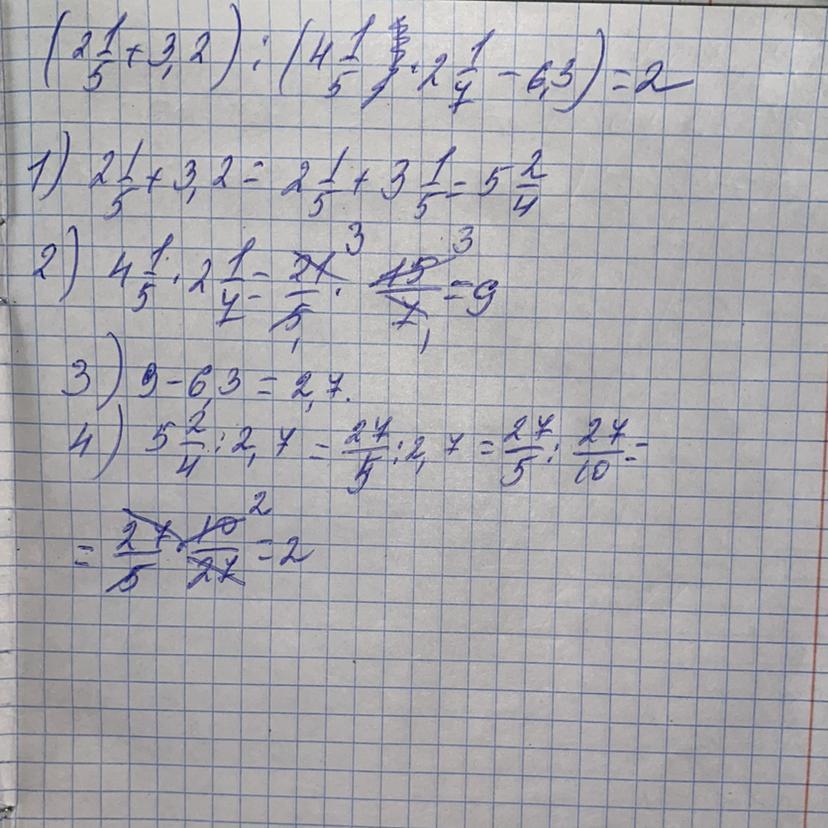 (2 1/5 + 3,2) : (4 1/5 · 2 1/7 - 6,3) = 2
1) 2 1/5 + 3,2 = 2 1/5 + 3 1/5 = 5 2/4
2) 4 1/5 · 2 1/7 = 21/5 · 15/7 = 9
3) 9 - 6,3 = 2,7.
4) 5 2/4 : 2,7 = 27/5 : 2,7 = 27/5 : 27/10 =
= 27/5 · 10/27 = 2